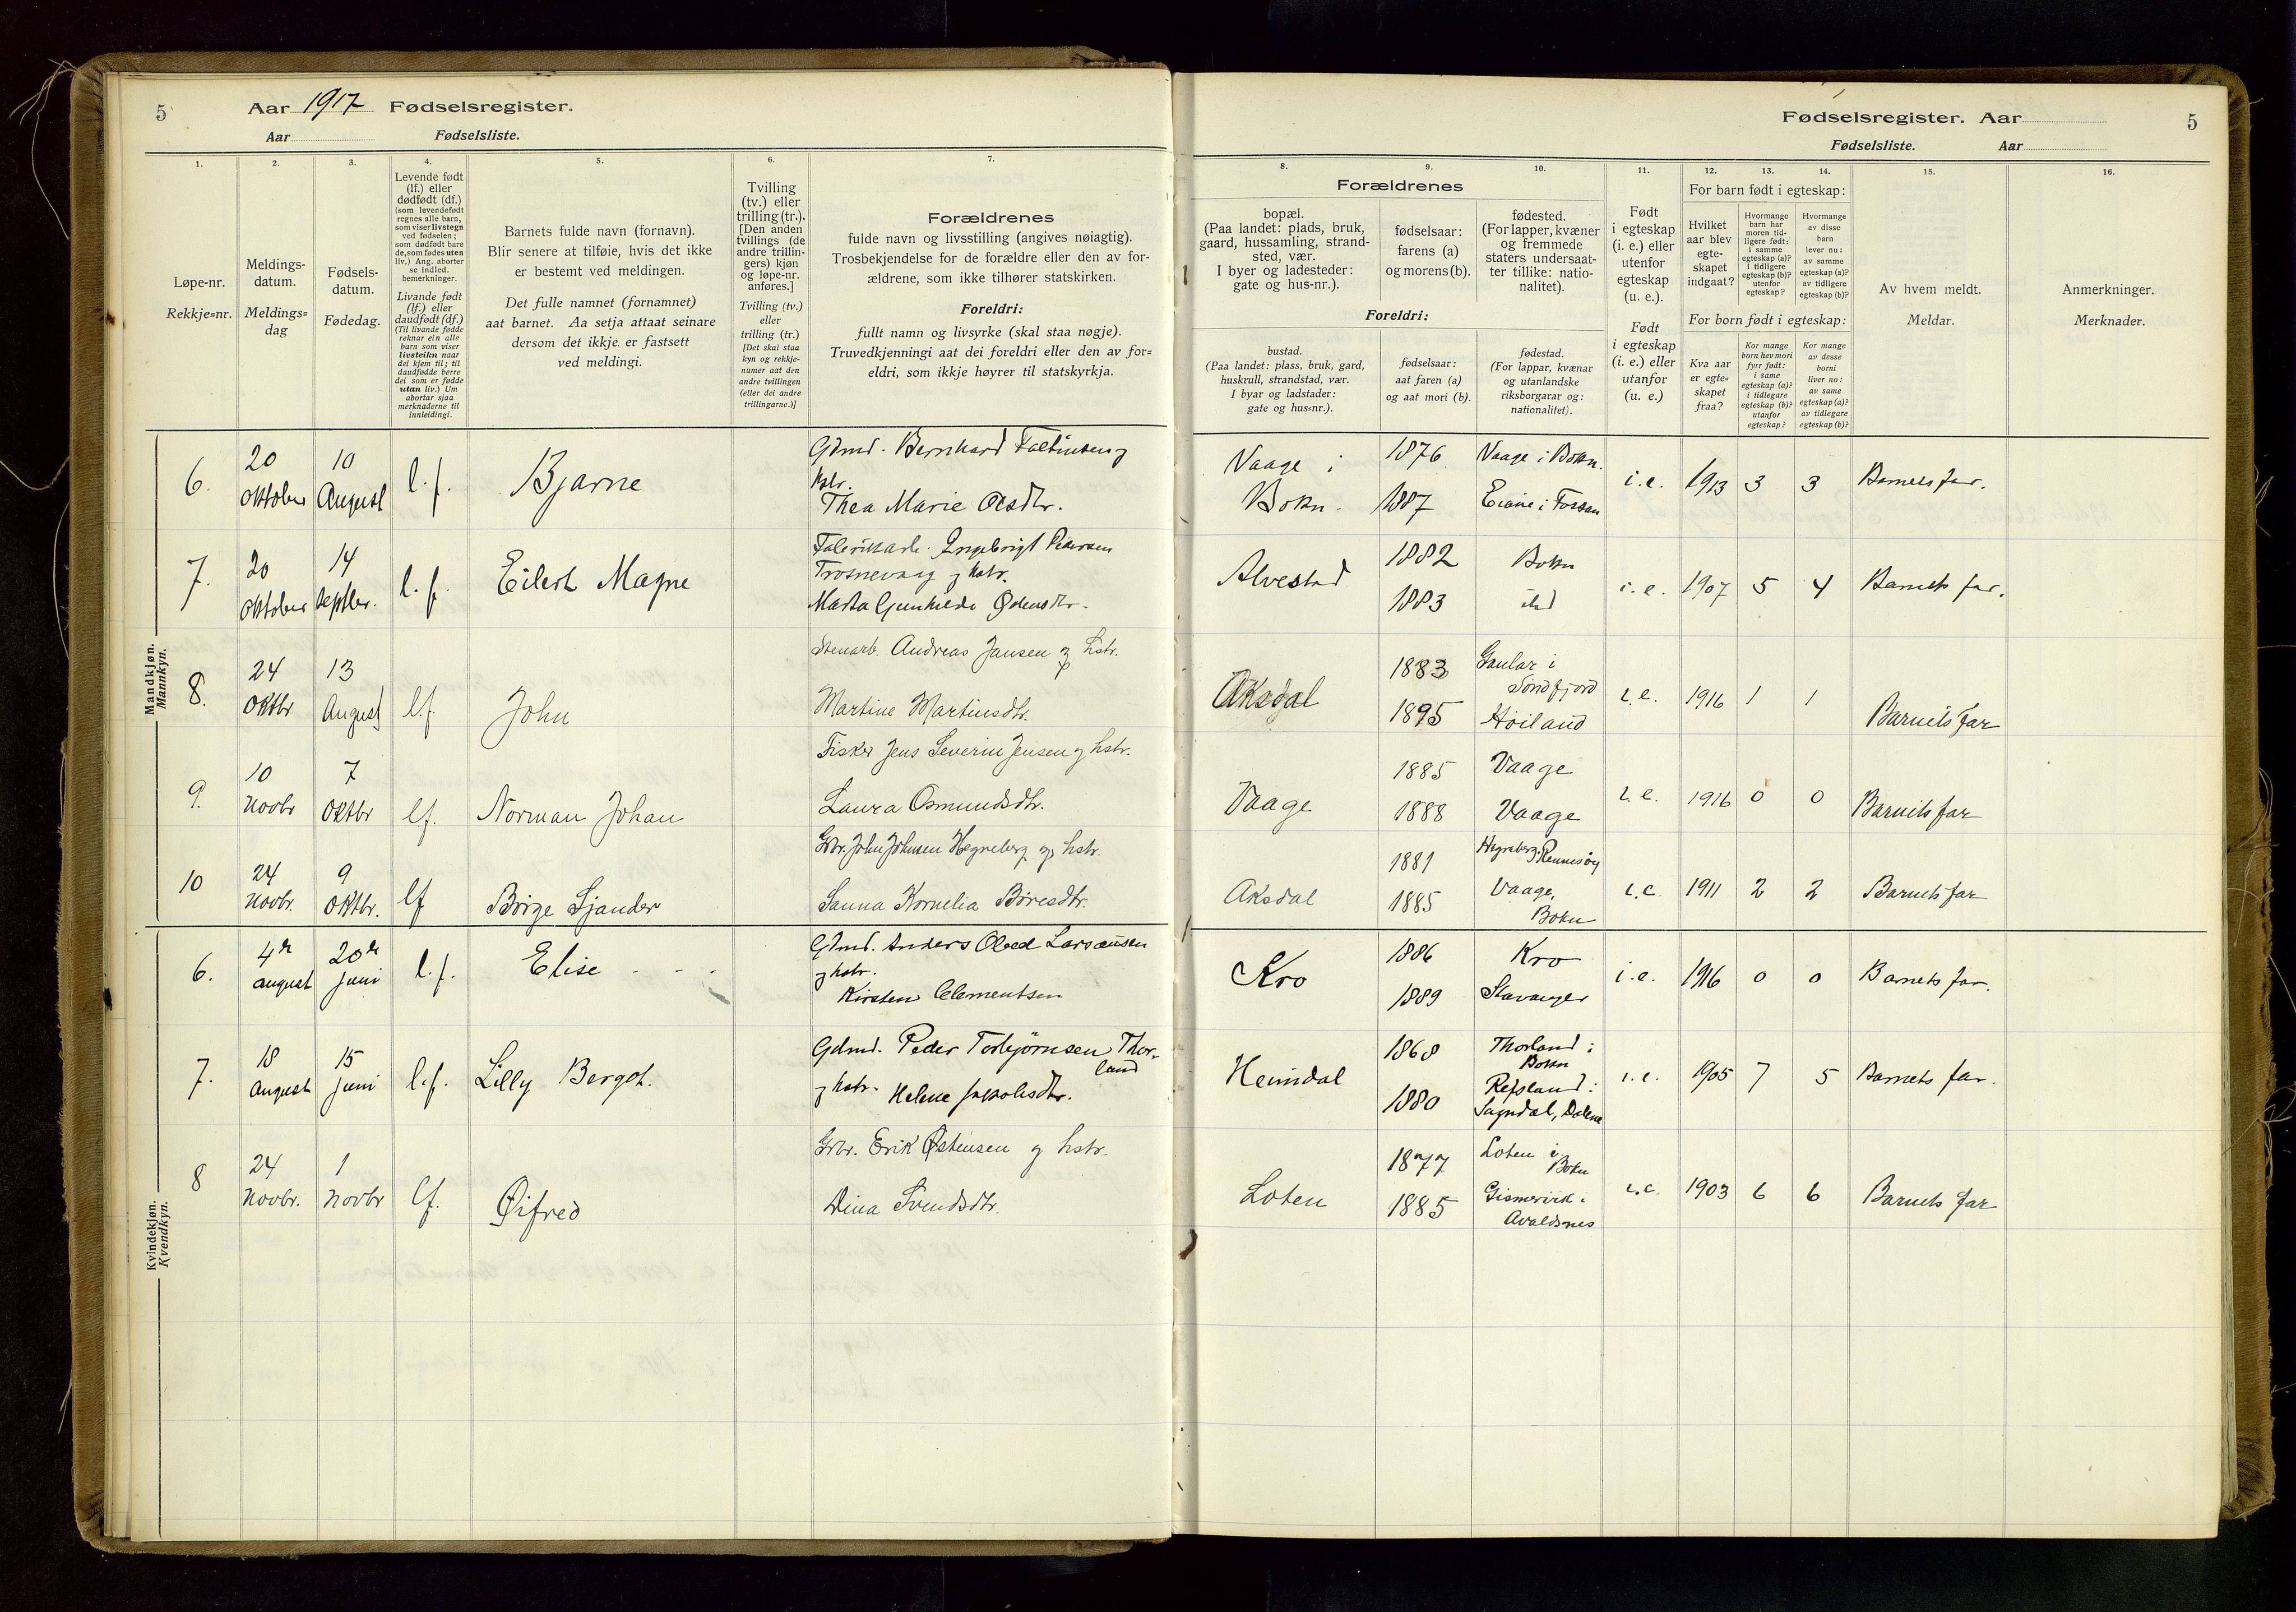 5
Aar 1917 Fødselsregister.
Aar Fødselsliste.
1.
Løpe-nr.
Rekkje=nr.
2.
Meldings-
datum.
Meldings=
dag
3.
Fødsels-
datum.
Fødedag.
4.
Levende født
(lf.) eller
dødfødt (df.)
(som levendefødt
regnes alle barn,
som viser livstegn
ved fødselen;
som dødfødt bare
de, som fødes uten
liv.) Ang. aborter
se indled.
bemerkninger.
Livande født
(lf.) eller
daudfødt (df.)
(Til livande fødde
reknar ein alle
barn som viser
livsteikn naar
dei kjem til; til
daudfødde berre
dei som er fødde
utan liv.) Um
abortar sjaa
merknaderne til
innleidingi.
5.
Barnets fulde navn (fornavn).
Blir senere at tilføie, hvis det ikke
er bestemt ved meldingen.
Det fulle namnet (fornamnet)
aat barnet. Aa setja attaat seinare
dersom det ikkje er fastsett
ved meldingi.
6.
Tvilling
(tv.) eller
trilling (tr.).
[Den anden
tvillings (de
andre trillin-
gers) kjøn
og løpe-nr.
anføres.]
Tvilling (tv.)
eller
trilling (tr.)
[Det skal staa
kyn og rekkje-
numer aat den
andre tvillingen
(eller dei andre
trillingarne.)]
7.
Forældrenes
fulde navn og livsstilling (angives nøiagtig).
Trosbekjendelse for de forældre eller den av for-
ældrene, som ikke tilhører statskirken.
Foreldri:
fullt namn og livsyrke (skal staa nøgje).
Truvedkjenningi aat dei foreldri eller den av for=
eldri, som ikkje høyrer til statskyrkja.
Mandkjøn.
Mannkyn.
6. 20 oktober 10 August l.f. Bjarne
Gdmd. Bernhard Faltinsen og
hstr.
Thea Marie Olsdtr.
7. 20 oktober 14 septbr. l.f. Eilert Magne
Ingebrigt Pedersen
og hstr.
Marta Gunhilde
8. 24 Oktbr 13 August lf. John
Stenarb. Andreas Jansen og hstr.
Martine Martinsdtr.
9. 10 Novbr 7 Oktbr lf. Norman Johan
Fisker Jens Severin Jensen og hstr.
Laura Osmundsdtr.
10 24 Novbr. 9 Oktbr. lf Børge Sjander
Gbr. John Johnsen Hegreberg og hstr.
Sanna Kornelia Børesdtr.
Kvindekjøn.
Kvendkyn.
6. 4de august 20de juni l.f. Elise
Gdmd. Anders Obed Larsen
og hstr.
Kirsten Clementsen
7. 18 august 15 juni l.f. Lilly Bergot.
Gdmd. Peder Torbjørnsen Thor-
land
og hstr. Helene Jakobsdtr.
8 24 Novbr. 1 Novbr lf. Øifred
Gbr. Erik Østensen og hstr.
Dina Svendsdtr.
Fødselsregister. Aar
5
Fødselsliste. Aar
8.
Forældrenes
bopæl.
(Paa landet: plads, bruk,
gaard, hussamling, strand-
sted, vær.
I byer og ladesteder:
gate og hus-nr.).
Foreldri:
bustad.
(Paa landet: plass, bruk, gard,
huskrull, strandstad, vær.
I byar og ladstader:
gate og hus=nr.).
9.
fødselsaar:
farens (a)
og morens (b).
fødselsaar:
aat faren (a)
og aat mori (b).
10.
fødested.
(For lapper, kvæner
og fremmede
staters undersaat-
ter tillike: natio-
nalitet).
fødestad.
(For lappar, kvænar
og utanlandske
riksborgarar og:
nationalitet).
11.
Født
i egteskap
(i. e.) eller
utenfor
egteskap
(u. e.).
Født
i egteskap
(i. e.) eller
utanfor
(u. e.)
12. 13. 14.
For barn født i egteskap:
Hvilket
aar blev
egte-
skapet
indgaat?
Hvormange
barn har
moren tid-
ligere født:
i samme
egteskap (a)?
i tidligere
egteskap (b)?
utenfor
egteskap?
Hvormange
av disse
barn
lever nu:
av samme
egteskap (a)?
av tidligere
egteskap (b)?
For born født i egteskap:
Kva aar
er egte=
skapet
fraa?
Kor mange
born hev mori
fyrr født:
i same
egteskap (a)?
i tidlegare
egteskap (b)?
utanfor
egteskap?
Kor mange
av desse
borni
liver no:
av same
egteskap (a)?
av tidlegare
egteskap (b)?
15.
Av hvem meldt.
Meldar.
16.
Anmerkninger.
Merknader.
Vaage i Bokn. 1876 1887 Vaage i Bokn. Eiane i Fossan i.e. 1913 3 3 Barnets far.
Alvestad 1882 1883 Bokn ibd i.e. 1907 5 4 Barnets far.
Aksdal 1883 1895 Gaular i Søndfjord Høiland i.e. 1916 1 1 Barnets far
Vaage 1885 1888 Vaage Vaage i.e. 1916 0 0 Barnets far
Aksdal 1881 1885 Hegreberg, Rennesøy Vaage, Bokn i.e. 1911 2 2 Barnets far
Kro 1886 1889 Kro Stavanger i.e. 1916 0 0 Barnets far.
Heimdal 1868 1880 Thorland i Bokn Refsland i Sogndal, Dalene i.e. 1905 7 5 Barnets far.
Loten 1877 1885 Loten i Bokn Gismervik i Avaldsnes i.e. 1903 6 6 Barnets far